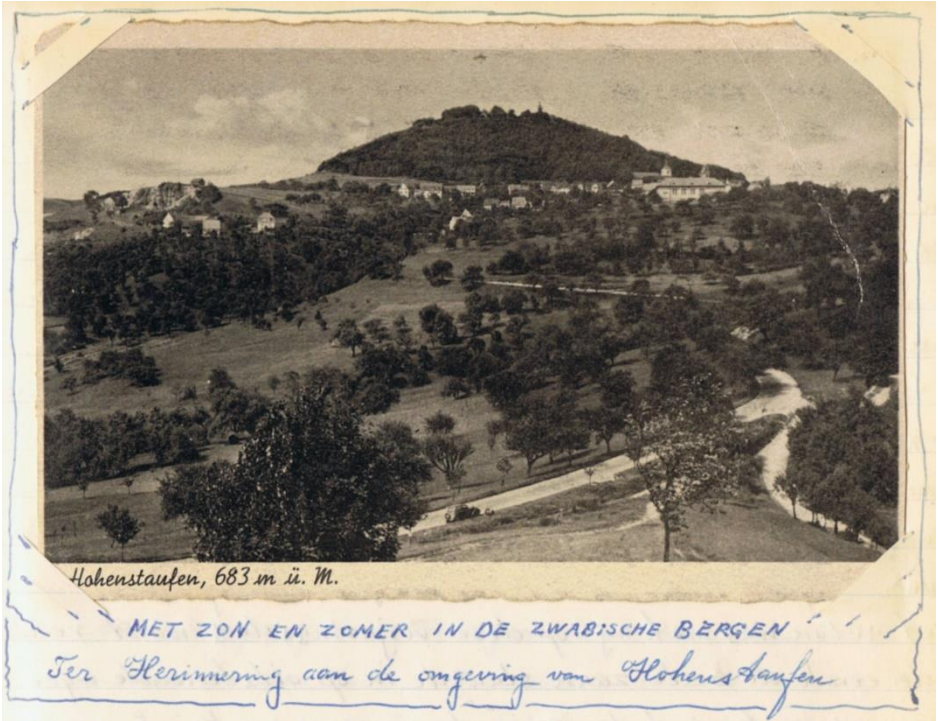 Hohenstaufen, 683 m ü. M.
MET ZON EN ZOMER IN DE ZWABISCHE BERGEN
Ter Herinnering aan de omgeving van Hohenstaufen